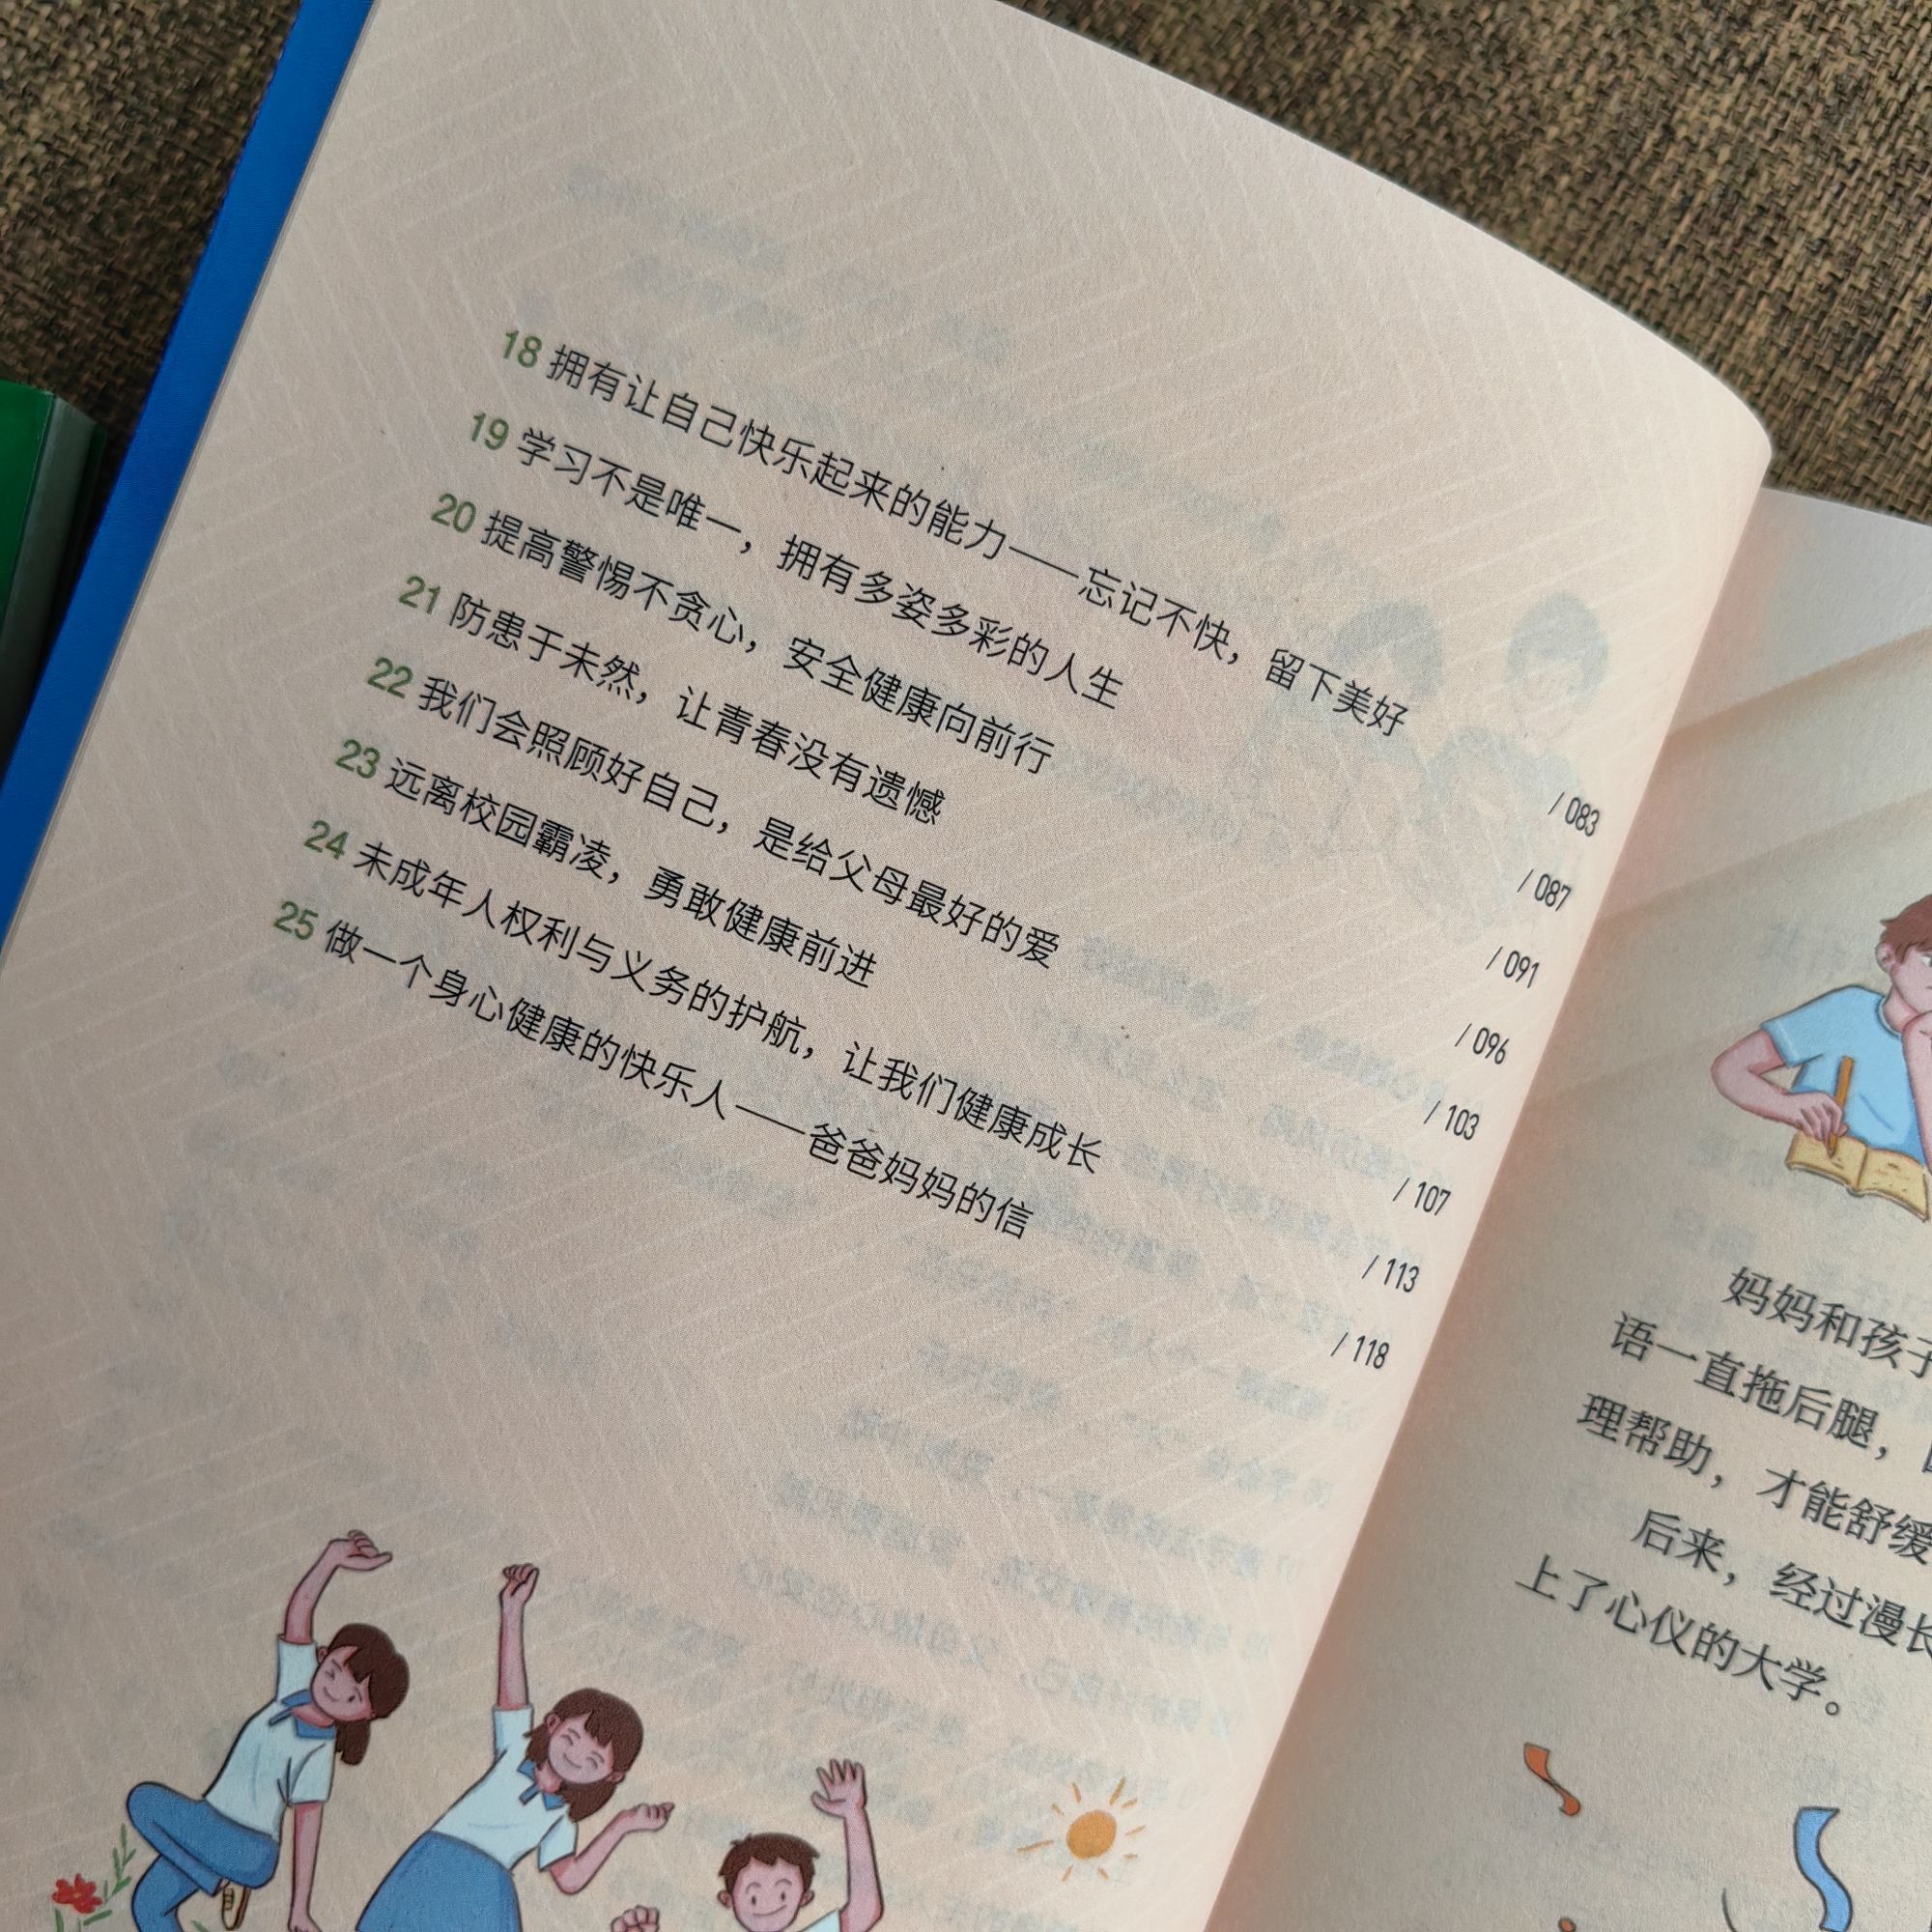 18 拥有让自己快乐起来的能力——忘记不快，留下美好 / 083
19 学习不是唯一，拥有多姿多彩的人生 / 087
20 提高警惕不贪心，安全健康向前行 / 091
21 防患于未然，让青春没有遗憾 / 096
22 我们会照顾好自己，是给父母最好的爱 / 103
23 远离校园霸凌，勇敢健康前进 / 107
24 未成年人权利与义务的护航，让我们健康成长 / 113
25 做一个身心健康的快乐人——爸爸妈妈的信 / 118
妈妈和孩子
语一直拖后腿，
理帮助，才能舒缓
后来，经过漫长
上了心仪的大学。